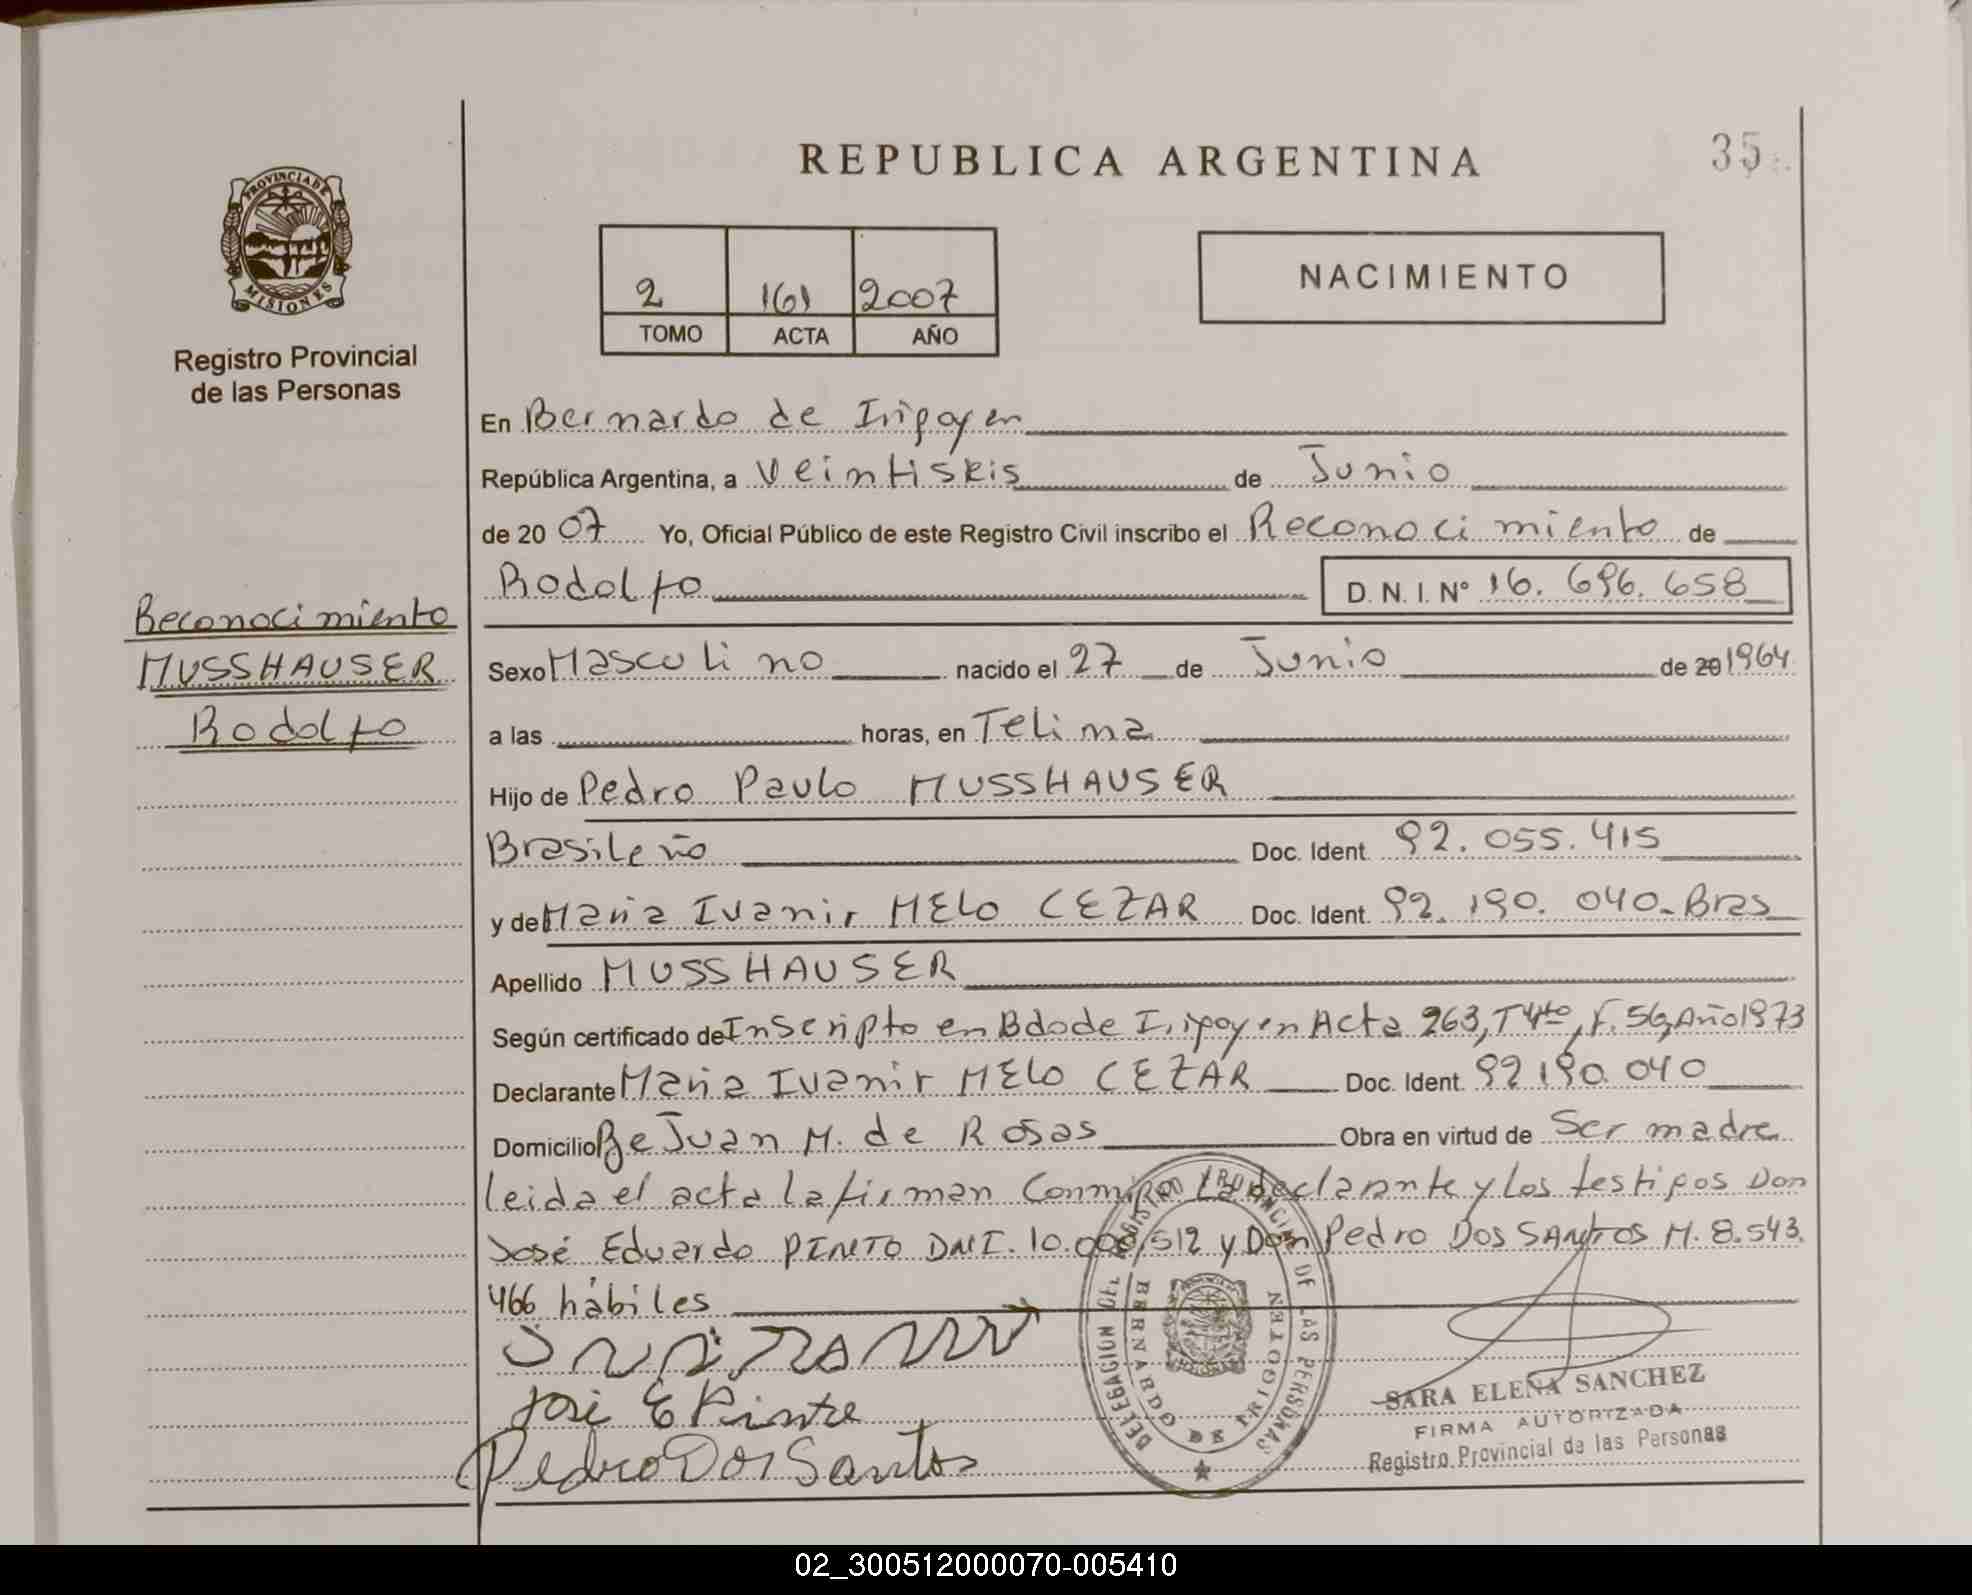 REPUBLICA ARGENTINA
35
PROVINCIA DE
MISIONES
Registro Provincial
de las Personas
2 161 2007
TOMO ACTA AÑO
NACIMIENTO
En Bernardo de Irigoyen
República Argentina, a Veintiseis de Junio
de 20 07 Yo, Oficial Público de este Registro Civil inscribo el Reconocimiento de
Rodolfo D. N. I. Nº 16. 696. 658
Reconocimiento
MUSSHAUSER
Rodolfo
Sexo Masculino nacido el 27 de Junio de 20 1964
a las horas, en Telima
Hijo de Pedro Paulo MUSSHAUSER
Brasileño Doc. Ident. 92. 055. 415
y de Maria Ivanir MELO CEZAR Doc. Ident. 92. 190. 040- Bras
Apellido MUSSHAUSER
Según certificado de Inscripto en Bdo de Irigoyen Acta 263, T 4to, F. 56, Año 1973
Declarante Maria Ivanir MELO CEZAR Doc. Ident. 92 190. 040
Domicilio Be Juan M. de Rosas Obra en virtud de Ser madre
leida el acta la firman Conmigo La declarante y Los testigos Don
José Eduardo PINTO DNI. 10. 512 y Don Pedro Dos SANTOS M. 8.543.
466 hábiles
José E Pinto
Pedro Dos Santos
DELEGACION DEL REGISTRO PROVINCIAL DE LAS PERSONAS
BERNARDO DE IRIGOYEN
SARA ELENA SANCHEZ
FIRMA AUTORIZADA
Registro Provincial de las Personas
02_300512000070-005410